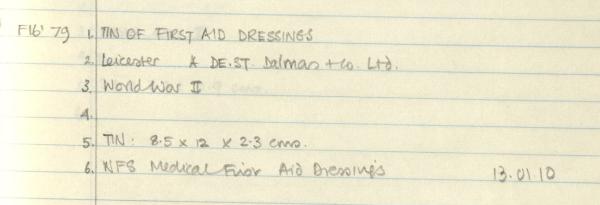 F16' 79 1. TIN OF FIRST AID DRESSINGS
2. Leicester A DE.ST. Dalmas + Co. Ltd.
3. World War II
4.
5. TIN: 8.5 x 12 x 2.3 cms.
6. NFS Medical First Aid Dressings 13.01.10